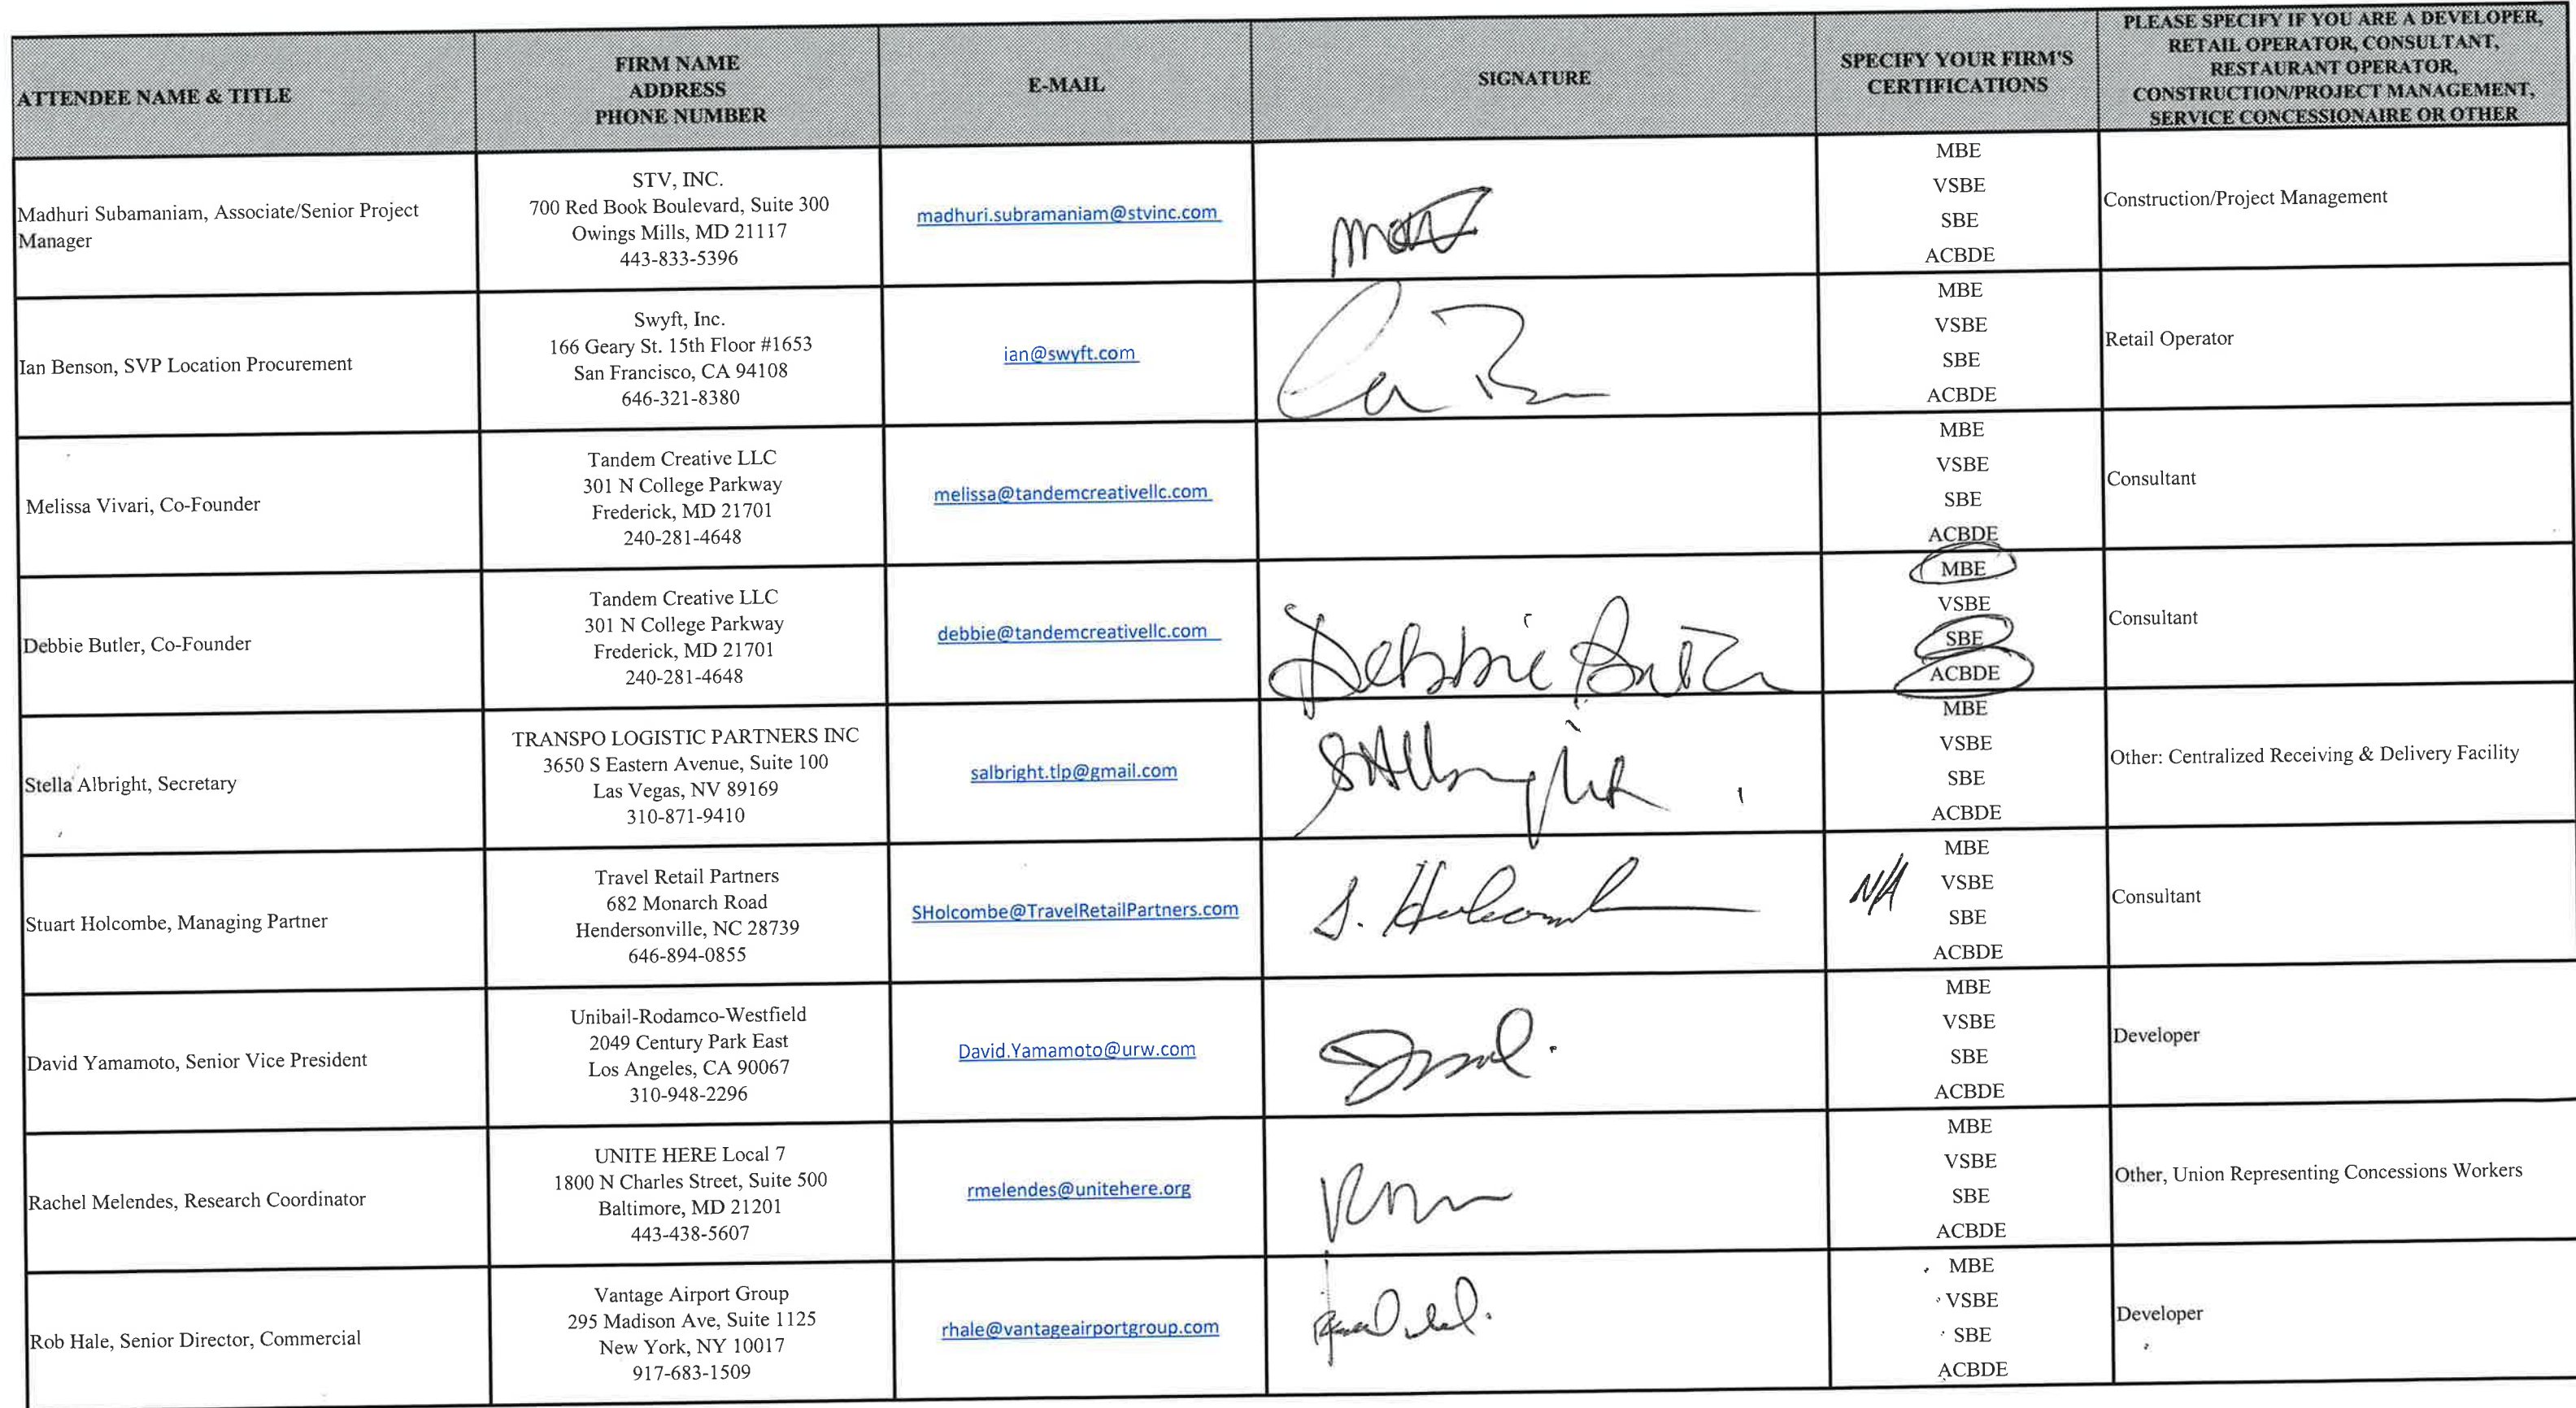 ATTENDEE NAME & TITLE
FIRM NAME
ADDRESS
PHONE NUMBER
E-MAIL
SIGNATURE
SPECIFY YOUR FIRM'S
CERTIFICATIONS
PLEASE SPECIFY IF YOU ARE A DEVELOPER,
RETAIL OPERATOR, CONSULTANT,
RESTAURANT OPERATOR,
CONSTRUCTION/PROJECT MANAGEMENT,
SERVICE CONCESSIONAIRE OR OTHER
Madhuri Subamaniam, Associate/Senior Project
Manager
STV, INC.
700 Red Book Boulevard, Suite 300
Owings Mills, MD 21117
443-833-5396
madhuri.subramaniam@stvinc.com
MBE
VSBE
SBE
ACBDE
Construction/Project Management
Ian Benson, SVP Location Procurement
Swyft, Inc.
166 Geary St. 15th Floor #1653
San Francisco, CA 94108
646-321-8380
ian@swyft.com
MBE
VSBE
SBE
ACBDE
Retail Operator
Melissa Vivari, Co-Founder
Tandem Creative LLC
301 N College Parkway
Frederick, MD 21701
240-281-4648
melissa@tandemcreativellc.com
MBE
VSBE
SBE
ACBDE
Consultant
Debbie Butler, Co-Founder
Tandem Creative LLC
301 N College Parkway
Frederick, MD 21701
240-281-4648
debbie@tandemcreativellc.com
Debbie Butler
MBE
VSBE
SBE
ACBDE
Consultant
Stella Albright, Secretary
TRANSPO LOGISTIC PARTNERS INC
3650 S Eastern Avenue, Suite 100
Las Vegas, NV 89169
310-871-9410
salbright.tlp@gmail.com
SAlbright
MBE
VSBE
SBE
ACBDE
Other: Centralized Receiving & Delivery Facility
Stuart Holcombe, Managing Partner
Travel Retail Partners
682 Monarch Road
Hendersonville, NC 28739
646-894-0855
SHolcombe@TravelRetailPartners.com
S. Holcomb
N/A
MBE
VSBE
SBE
ACBDE
Consultant
David Yamamoto, Senior Vice President
Unibail-Rodamco-Westfield
2049 Century Park East
Los Angeles, CA 90067
310-948-2296
David.Yamamoto@urw.com
MBE
VSBE
SBE
ACBDE
Developer
Rachel Melendes, Research Coordinator
UNITE HERE Local 7
1800 N Charles Street, Suite 500
Baltimore, MD 21201
443-438-5607
rmelendes@unitehere.org
MBE
VSBE
SBE
ACBDE
Other, Union Representing Concessions Workers
Rob Hale, Senior Director, Commercial
Vantage Airport Group
295 Madison Ave, Suite 1125
New York, NY 10017
917-683-1509
rhale@vantageairportgroup.com
MBE
VSBE
SBE
ACBDE
Developer